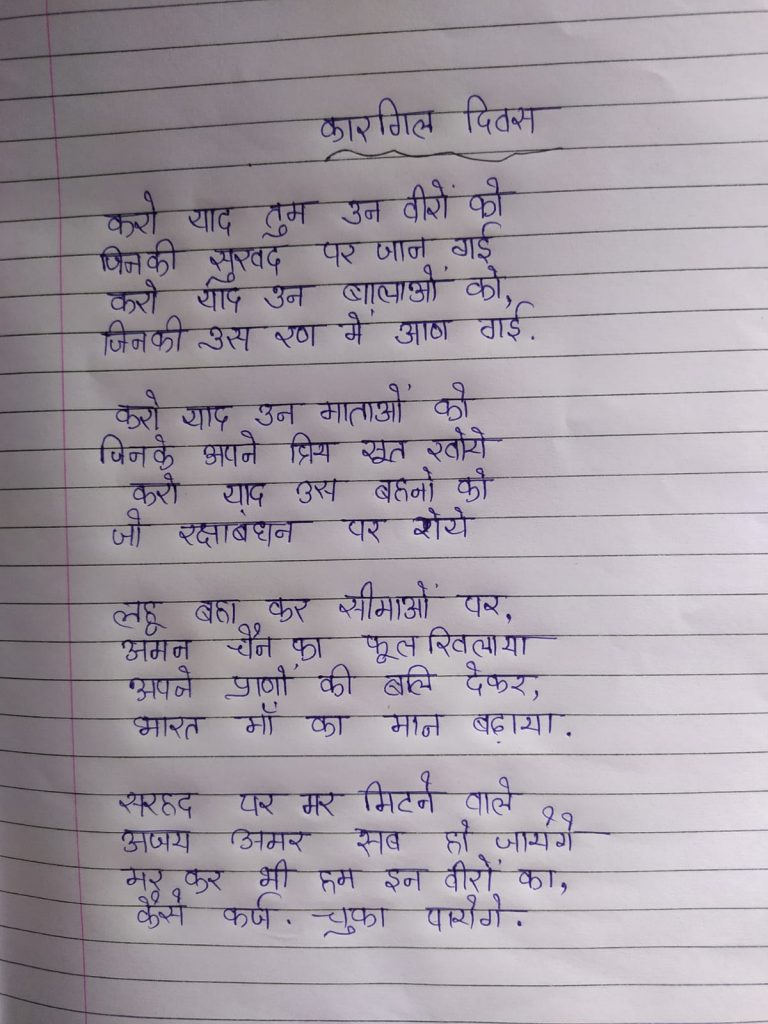 कारगिल दिवस
करो याद तुम उन वीरों को
जिनकी सुरखद पर जान गई
करो याद उन बालाओं को,
जिनकी उस रण में आण गई.
करो याद उन माताओं को
जिनके अपने प्रिय सूत खोये
करो याद उस बहनो को
जो रक्षाबंधन पर रोये
लहू बहा कर सीमाओं पर,
अमन चैन का फूल खिलाया
अपने प्राणों की बलि देकर,
भारत माँ का मान बढ़ाया.
सरहद पर मर मिटने वाले
अजय अमर सब हो जायेंगे
मर कर भी हम इन वीरों का,
कैसे कर्ज. चुका पायेगे.